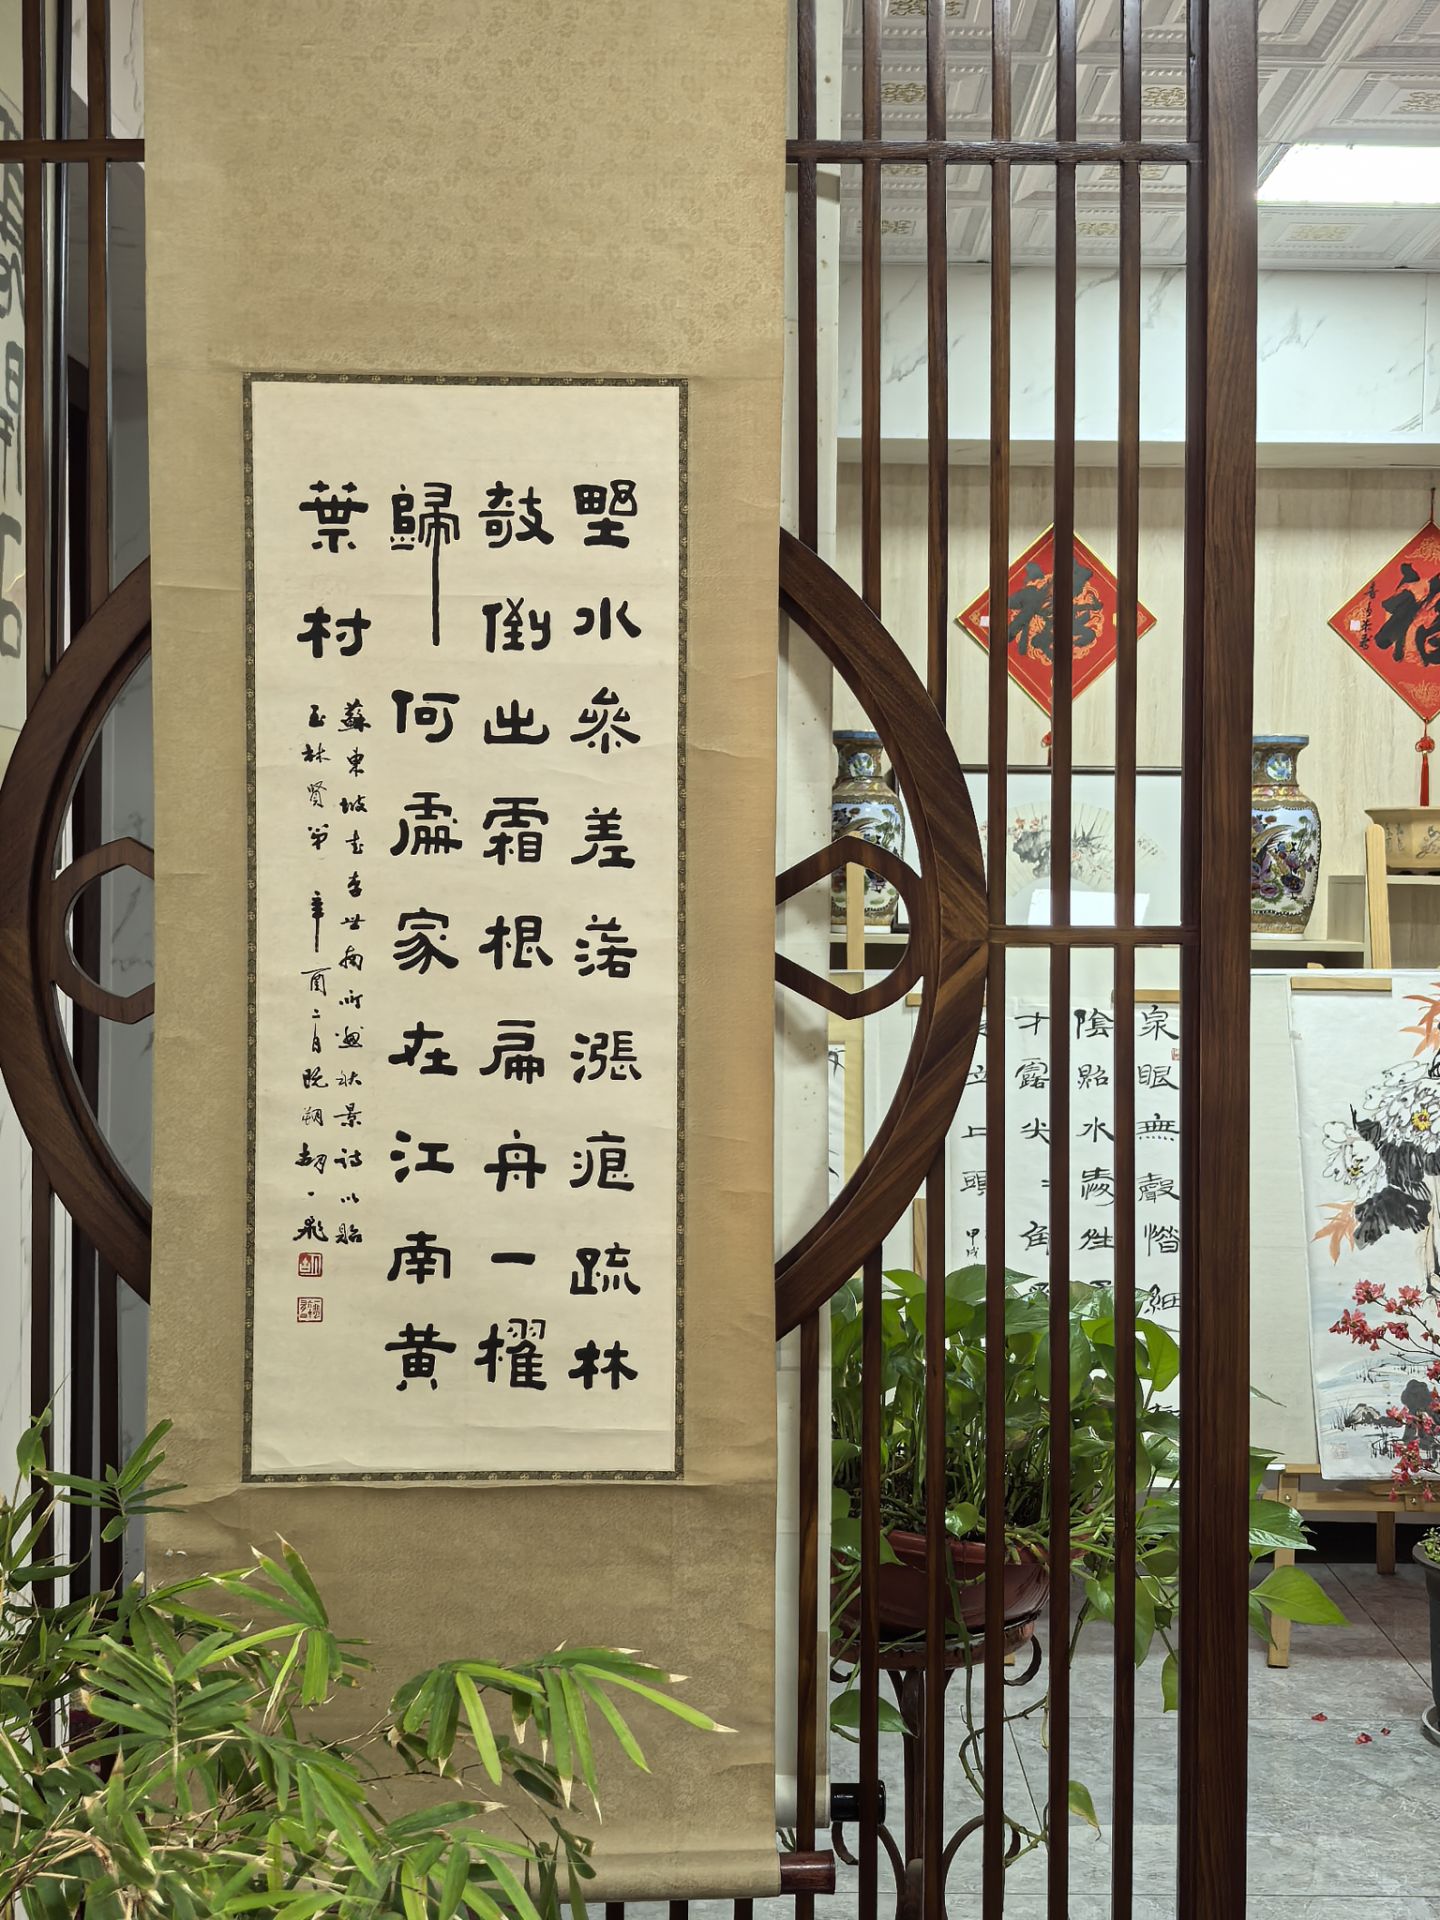 野水參差落漲痕疏林
攲倒出霜根扁舟一櫂
歸何處家在江南黃
葉村
蘇東坡書李世南所畫秋景詩以貽
玉林賢弟 辛酉二月既朔胡一飛
禧
福
泉眼無聲惜細
陰照水愛
才露尖角
上頭
甲戌